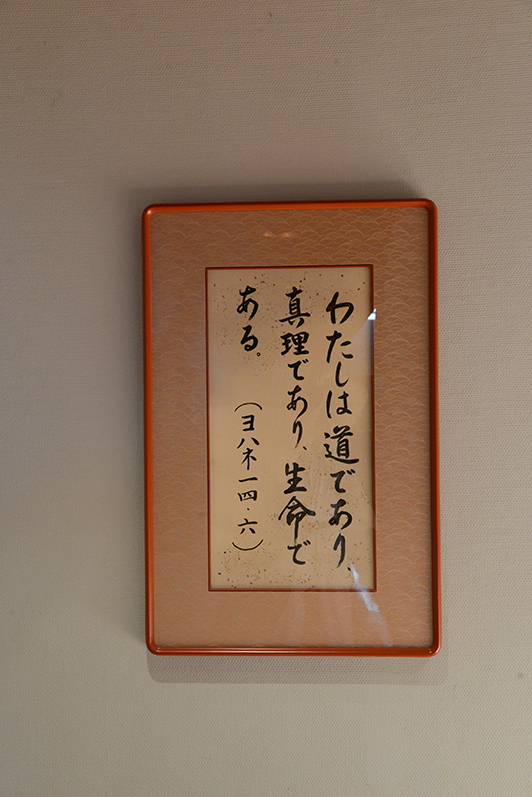 わたしは道であり、
真理であり、生命で
ある。
（ヨハネ一四・六）